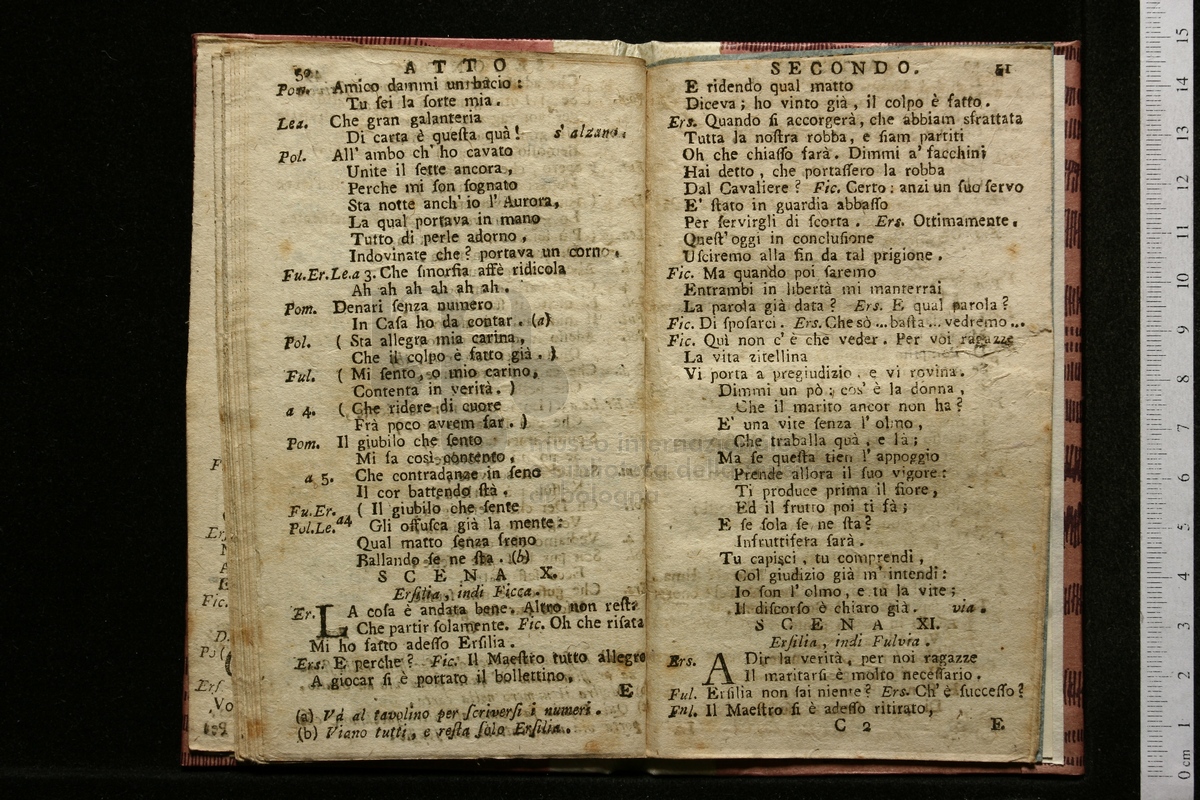 50 ATTO
Pom. Amico dammi un bacio:
Tu sei la sorte mia.
Lea. Che gran galanteria
Di carta è questa quà! s'alzano.
Pol. All' ambo ch' ho cavato
Unite il sette ancora,
Perche mi son sognato
Sta notte anch' io l' Aurora,
La qual portava in mano
Tutto di perle adorno,
Indovinate che? portava un corno.
Fu.Er.Le.a 3. Che smorfia affè ridicola
Ah ah ah ah ah ah.
Pom. Denari senza numero
In Casa ho da contar. (a)
Pol. ( Sta allegra mia carina,
Che il colpo è fatto già. )
Ful. ( Mi sento, o mio carino,
Contenta in verità. )
a 4. ( Che ridere di cuore
Frà poco avrem far. )
Pom. Il giubilo che sento
Mi fa così contento,
a 5. Che contradanze in seno
Il cor battendo stà.
Fu.Er. ( Il giubilo che sente
Pol.Le.a4 Gli offusca già la mente:
Qual matto senza freno
Ballando se ne sta. (b)
SCENA X.
Ersilia, indi Ficca.
Er. LA cosa è andata bene. Altro non resta
Che partir solamente. Fic. Oh che risata
Mi ho fatto adesso Ersilia.
Ers. E perche? Fic. Il Maestro tutto allegro
A giocar si è portato il bollettino,
E
(a) Và al tavolino per scriversi i numeri.
(b) Viano tutti, e resta solo Ersilia.
SECONDO. 51
E ridendo qual matto
Diceva; ho vinto già, il colpo è fatto.
Ers. Quando si accorgerà, che abbiam sfrattata
Tutta la nostra robba, e siam partiti
Oh che chiasso farà. Dimmi a' facchini
Hai detto, che portassero la robba
Dal Cavaliere? Fic. Certo: anzi un suo servo
E' stato in guardia abbasso
Per servirgli di scorta. Ers. Ottimamente.
Quest' oggi in conclusione
Usciremo alla fin da tal prigione.
Fic. Ma quando poi saremo
Entrambi in libertà mi manterrai
La parola già data? Ers. E qual parola?
Fic. Di sposarci. Ers. Che sò ... basta ... vedremo ...
Fic. Quì non c' è che veder. Per voi ragazze
La vita zitellina
Vi porta a pregiudizio, e vi rovina.
Dimmi un pò: cos' è la donna,
Che il marito ancor non ha?
E' una vite senza l' olmo,
Che traballa quà, e là;
Ma se questa tien l' appoggio
Prende allora il suo vigore:
Ti produce prima il fiore,
Ed il frutto poi ti fà;
E se sola se ne sta?
Infruttifera sarà.
Tu capisci, tu comprendi,
Col giudizio già m' intendi:
Io son l' olmo, e tu la vite;
Il discorso è chiaro già. via.
SCENA XI.
Ersilia, indi Fulvia.
Ers. A Dir la verità, per noi ragazze
Il maritarsi è molto necessario.
Ful. Ersilia non sai niente? Ers. Ch' è successo?
Fnl. Il Maestro si è adesso ritirato,
C 2 E